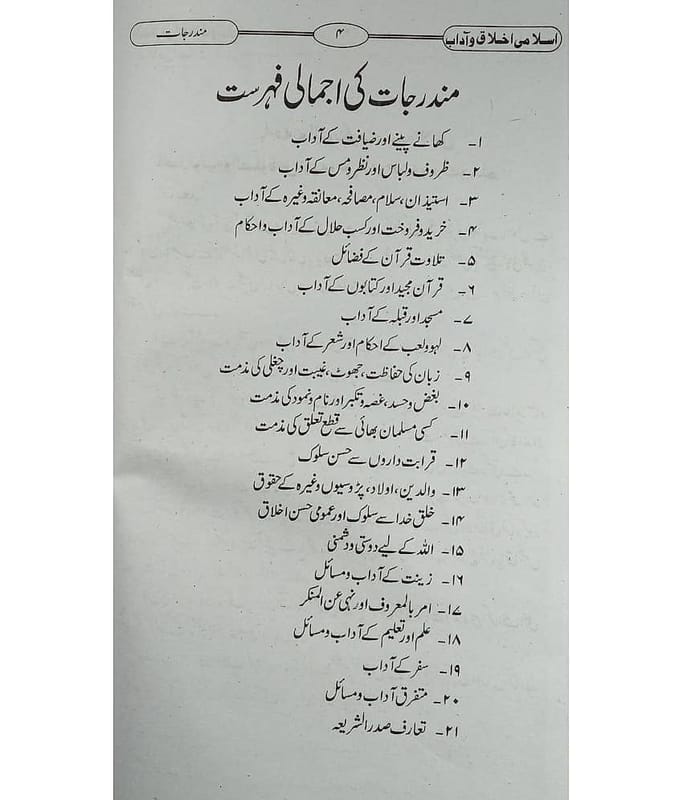 اسلامی اخلاق و آداب
۴
مندرجات
مندرجات کی اجمالی فہرست
۱- کھانے پینے اور ضیافت کے آداب
۲- ظروف و لباس اور نظر و مس کے آداب
۳- استیذان، سلام، مصافحہ، معانقہ وغیرہ کے آداب
۴- خرید و فروخت اور کسب حلال کے آداب و احکام
۵- تلاوت قرآن کے فضائل
۶- قرآن مجید اور کتابوں کے آداب
۷- مسجد اور قبلہ کے آداب
۸- لہو و لعب کے احکام اور شعر کے آداب
۹- زبان کی حفاظت، جھوٹ، غیبت اور چغلی کی مذمت
۱۰- بغض و حسد، غصہ و تکبر اور نام و نمود کی مذمت
۱۱- کسی مسلمان بھائی سے قطع تعلق کی مذمت
۱۲- قرابت داروں سے حسن سلوک
۱۳- والدین، اولاد، پڑوسیوں وغیرہ کے حقوق
۱۴- خلق خدا سے سلوک اور عمومی حسن اخلاق
۱۵- اللہ کے لیے دوستی و دشمنی
۱۶- زینت کے آداب و مسائل
۱۷- امر بالمعروف اور نہی عن المنکر
۱۸- علم اور تعلیم کے آداب و مسائل
۱۹- سفر کے آداب
۲۰- متفرق آداب و مسائل
۲۱- تعارف صدر الشریعہ